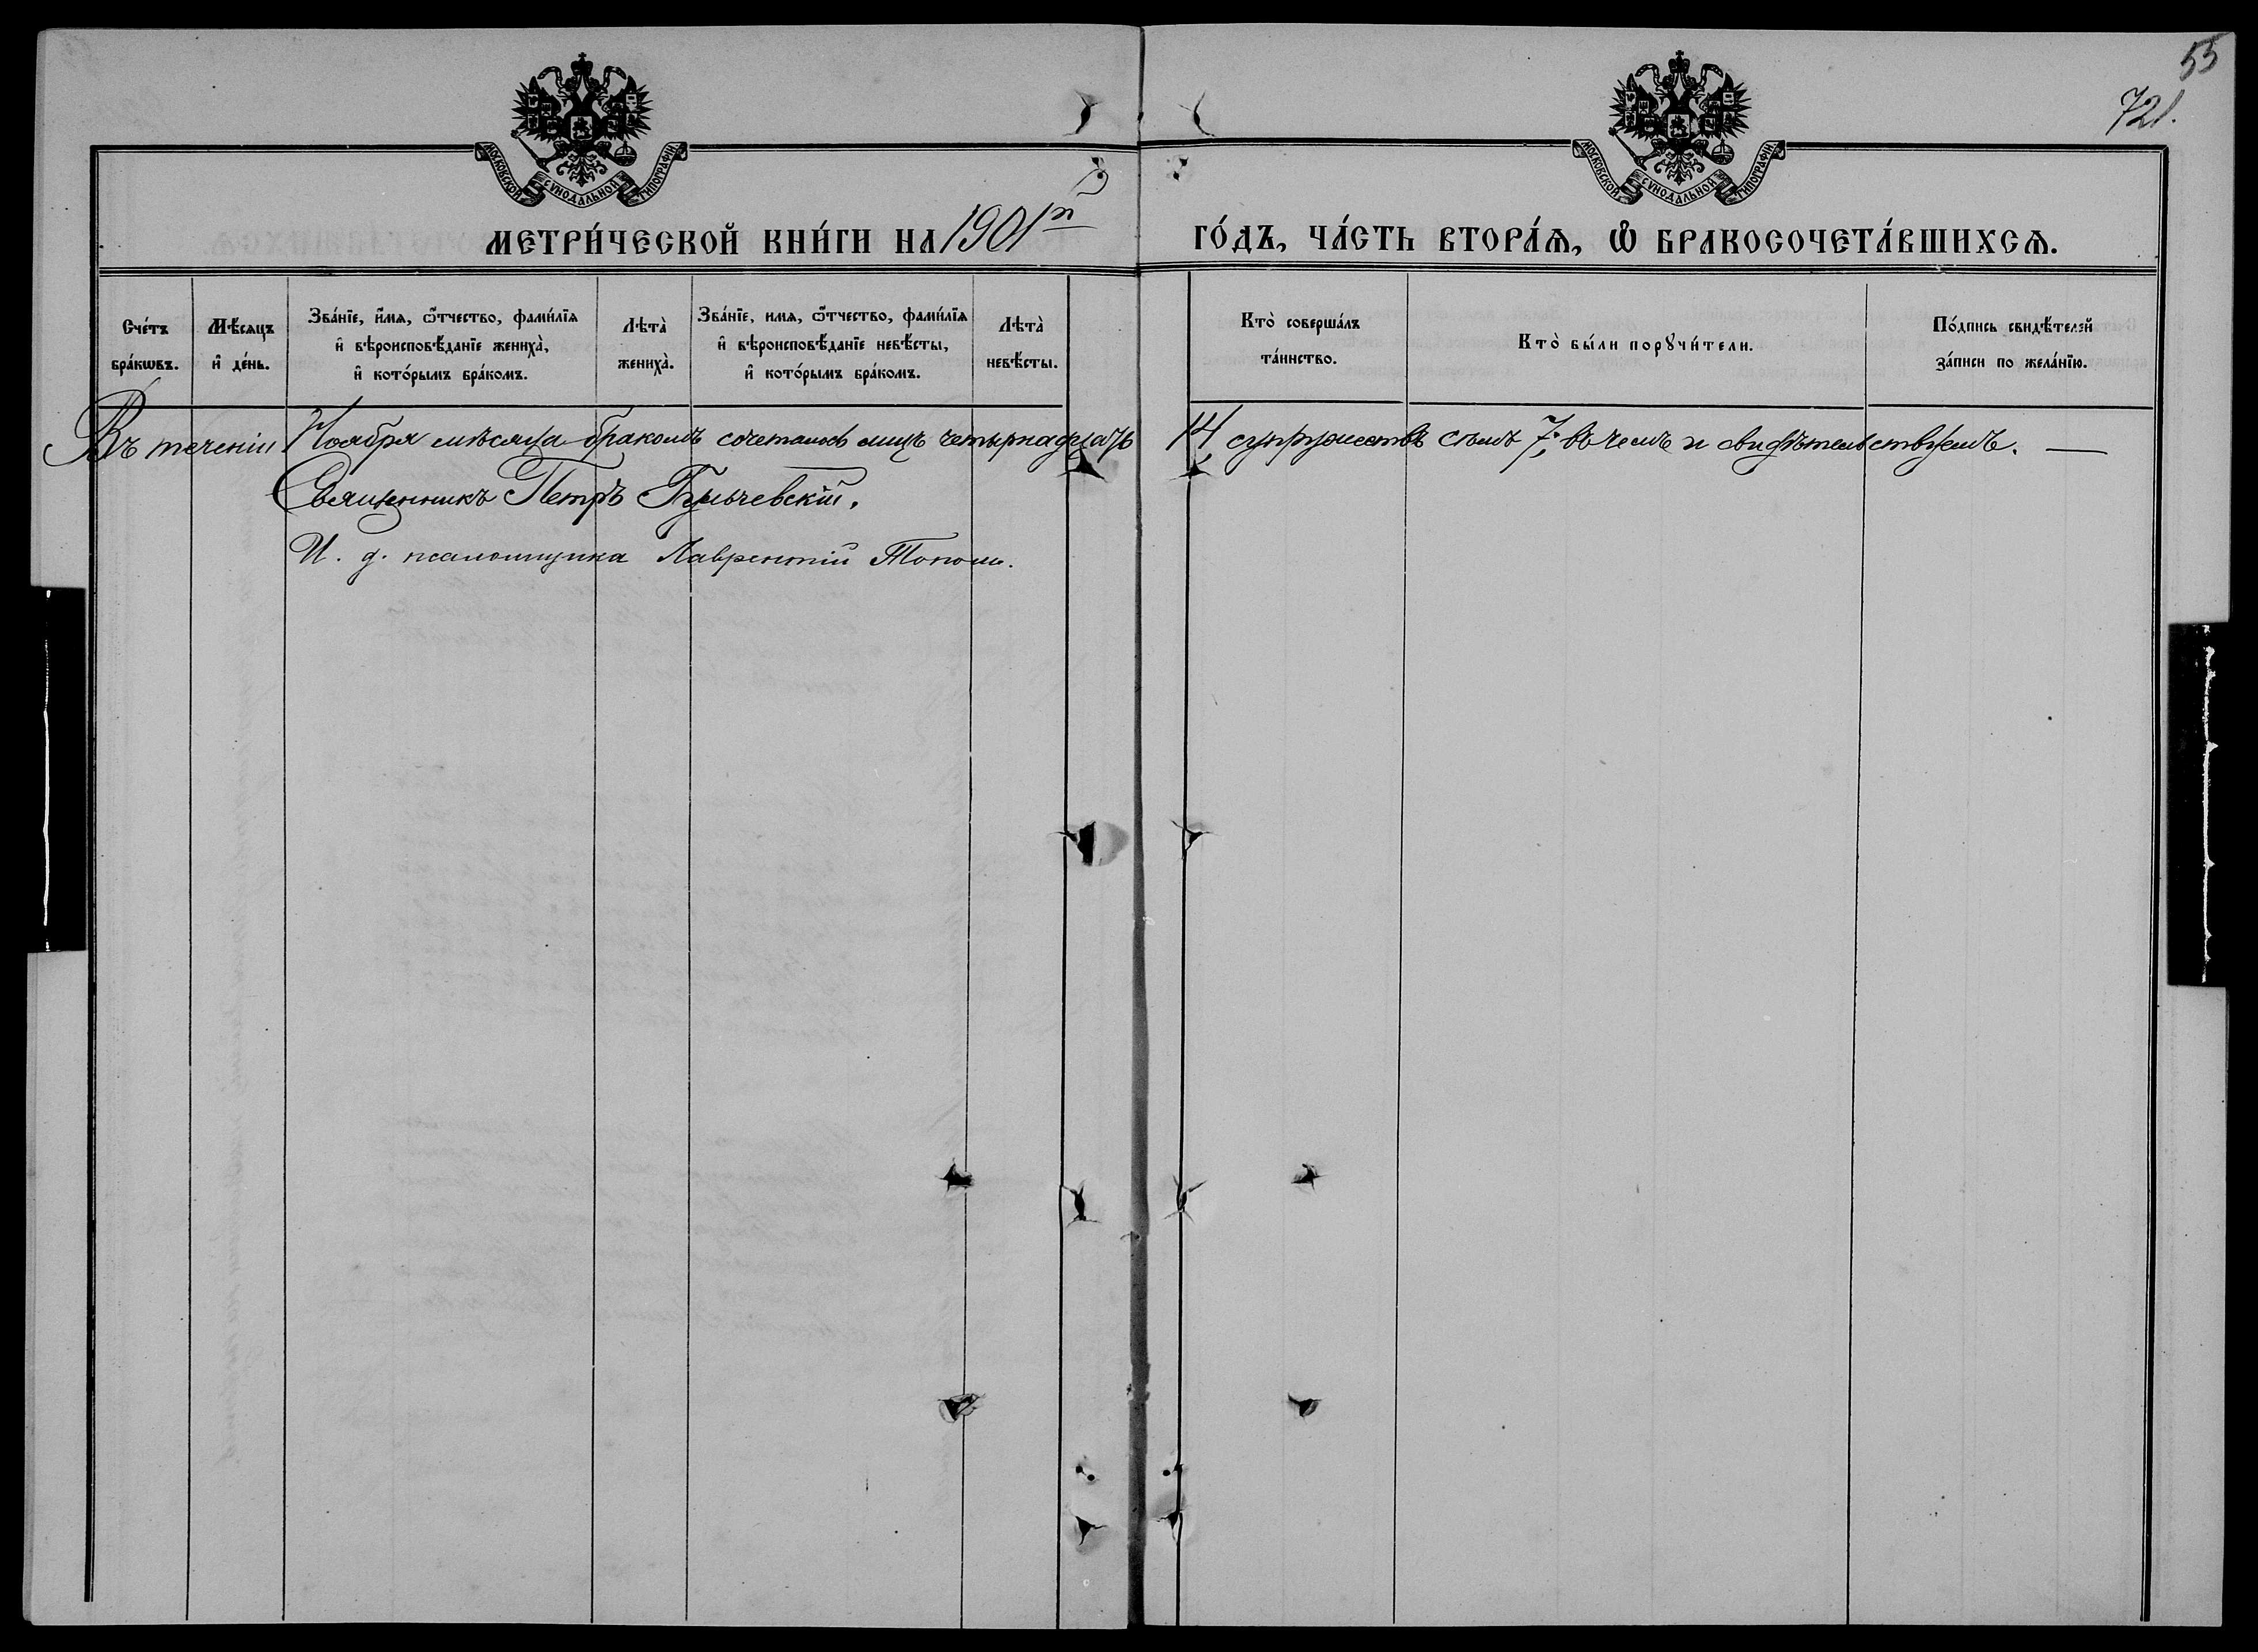 55
721.
МОСКОВСКОЙ СѴНОДАЛЬНОЙ ТИПОГРАФІИ
МОСКОВСКОЙ СѴНОДАЛЬНОЙ ТИПОГРАФІИ
МЕТРИ́ЧЕСКОЙ КНИ́ГИ НА 1901й ГО́ДЪ, ЧА́СТЬ ВТОРА́Ѧ, Ѽ БРАКОСОЧЕТА́ВШИХСѦ.
Сче́тъ
бра́кѡвъ.
Мѣ́сѧцъ
и҆ де́нь.
Зва́нїе, и҆́мѧ, ѻ҆́тчество, фами́лїѧ
и҆ вѣроисповѣ́данїе жениха̀,
и҆ кото́рымъ бра́комъ.
Лѣта̀
жениха̀.
Зва́нїе, имѧ, ѻ҆́тчество, фами́лїѧ
и҆ вѣроисповѣ́данїе невѣ́сты,
и҆ кото́рымъ бра́комъ.
Лѣта̀
невѣ́сты.
Кто̀ соверша́лъ
та́инство.
Кто̀ бы́ли порꙋчи́тели.
По́дпись свидѣ́телей
за́писи по жела́нїю.
Въ теченіи Ноября мѣсяца бракомъ сочеталось лицъ четырнадцать 14, супружествъ семь 7; въ чемъ и свидѣтельствуемъ. —
Священникъ Петръ
И. д. псаломщика Лаврентій Тополь.